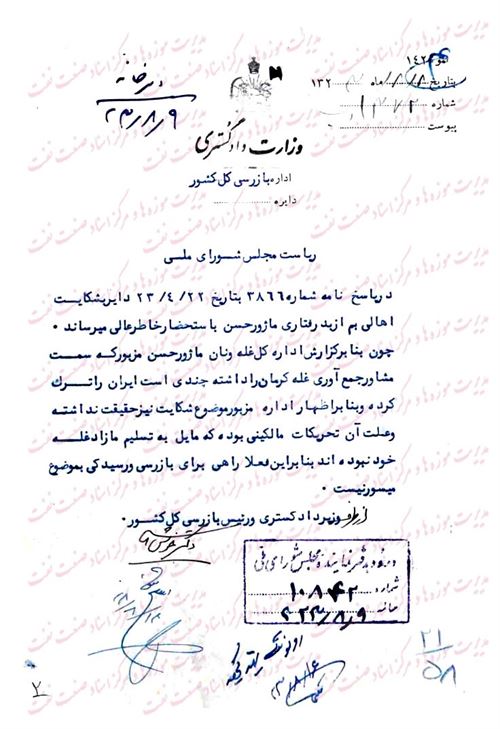 دبیرخانه
۲۳/۸/۹
بتاریخ ۸/۸/ ماه ۱۳۲
شماره
پیوست
وزارت دادگستری
اداره بازرسی کل کشور
دایره
ریاست مجلس شورای ملی
درپاسخ نامه شماره ۳۸۶۶ بتاریخ ۲۳/۴/۲۲ دایر بشکایت
اهالی بم از بد رفتاری ماژور حسن باستحضار خاطر عالی میرساند ۰
چون بنابر گزارش اداره کل غله ونان ماژور حسن مزبور که سمت
مشاور جمع آوری غله کرمان را داشته چندی است ایران را ترک
کرده وبنابر اظهار اداره مزبور موضوع شکایت نیز حقیقت نداشته
وعلت آن تحریکات مالکینی بوده که مایل به تسلیم مازاد غله
خود نبوده اند بنابر این فعلا راهی برای بازرسی ورسیدگی بموضوع
میسور نیست ۰
از طرف وزیر دادگستری ورئیس بازرسی کل کشور ۰
ورود بدفتر نماینده مجلس شورای ملی
شماره ۱۰۸۴۲
۲۳/۸/۹
۲۱/۵۸
۲
مدیریت موزه ها و مرکز اسناد صنعت نفت